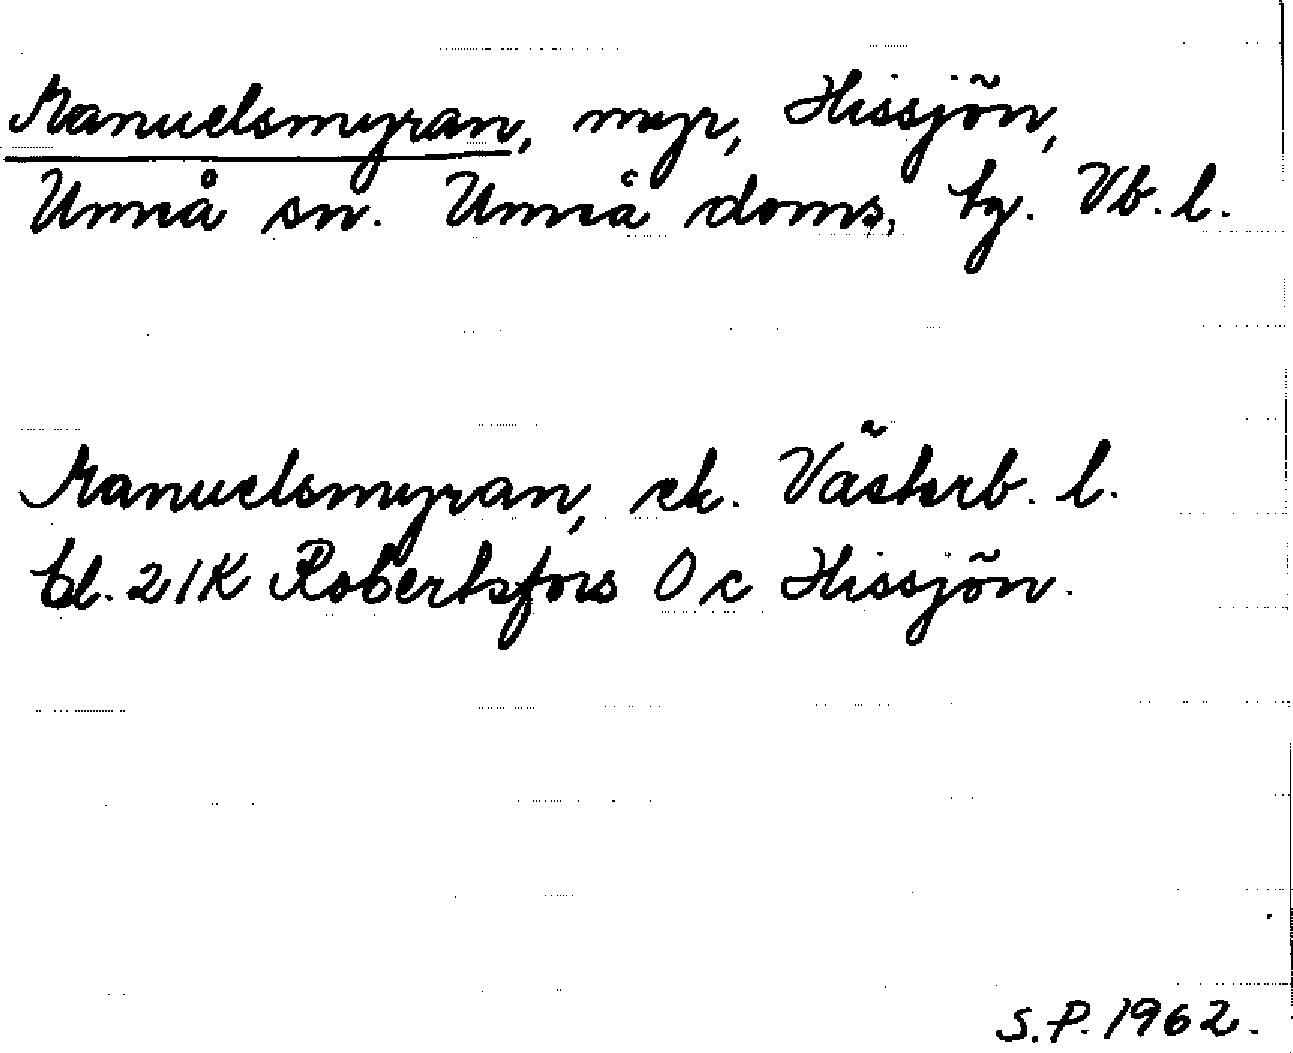 Manuelsmyran, myr, Hissjön,
Umeå sn. Umeå doms, tg. Vb. l.
Manuelsmyran, ek. Västerb. l.
bl. 21K Robertsfors 0 c Hissjön.
S.P. 1962.